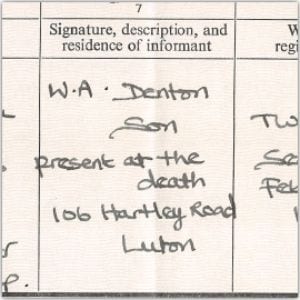 7
Signature, description, and
residence of informant
W
regi
W.A. Denton
Son
TW
present at the
Se
death
Feb
106 Hartley Road
Luton
P.